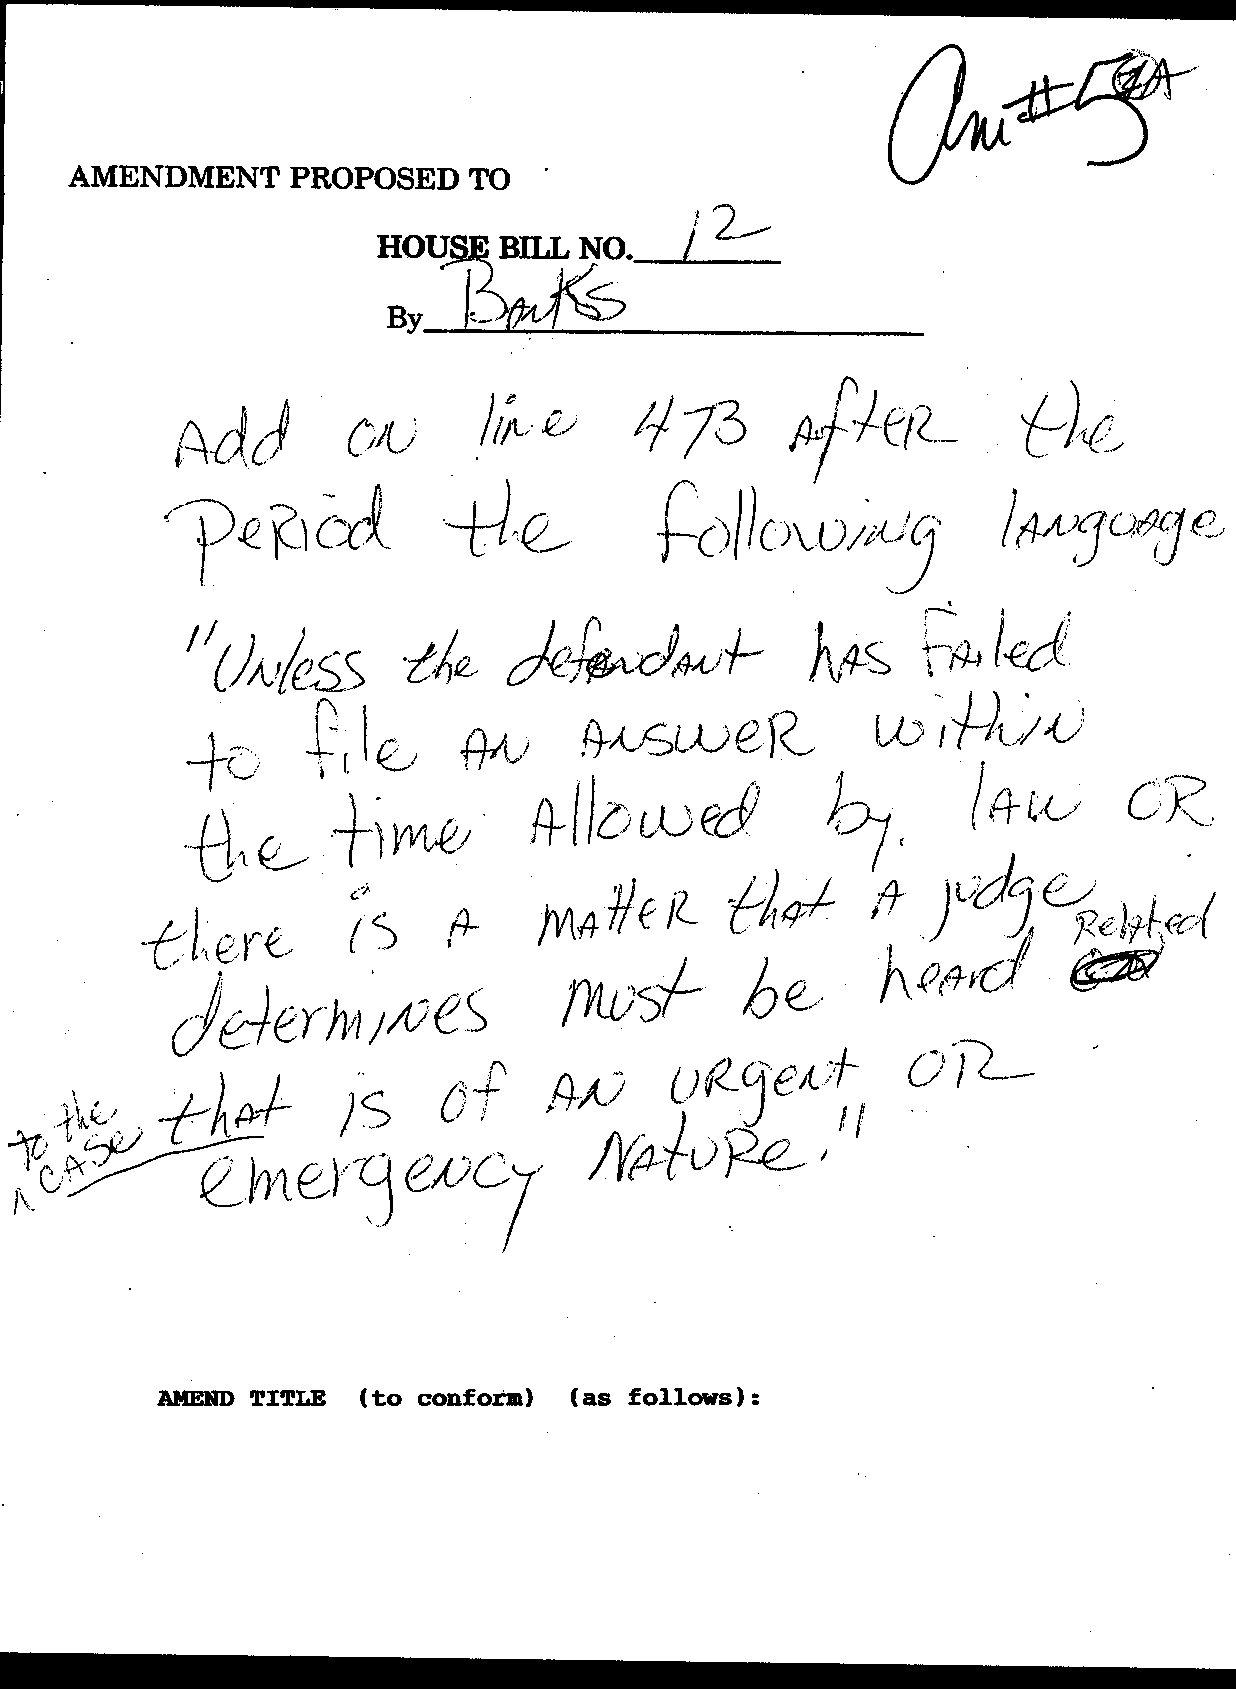 Am #5
AMENDMENT PROPOSED TO
HOUSE BILL NO. 12
By Banks
Add on line 473 After the
Period the following language
"Unless the defendant has failed
to file an answer within
the time Allowed by law OR
there is A matter that A judge
determines must be heard Related
to the case that is of an urgent OR
emergency Nature."
AMEND TITLE (to conform) (as follows):